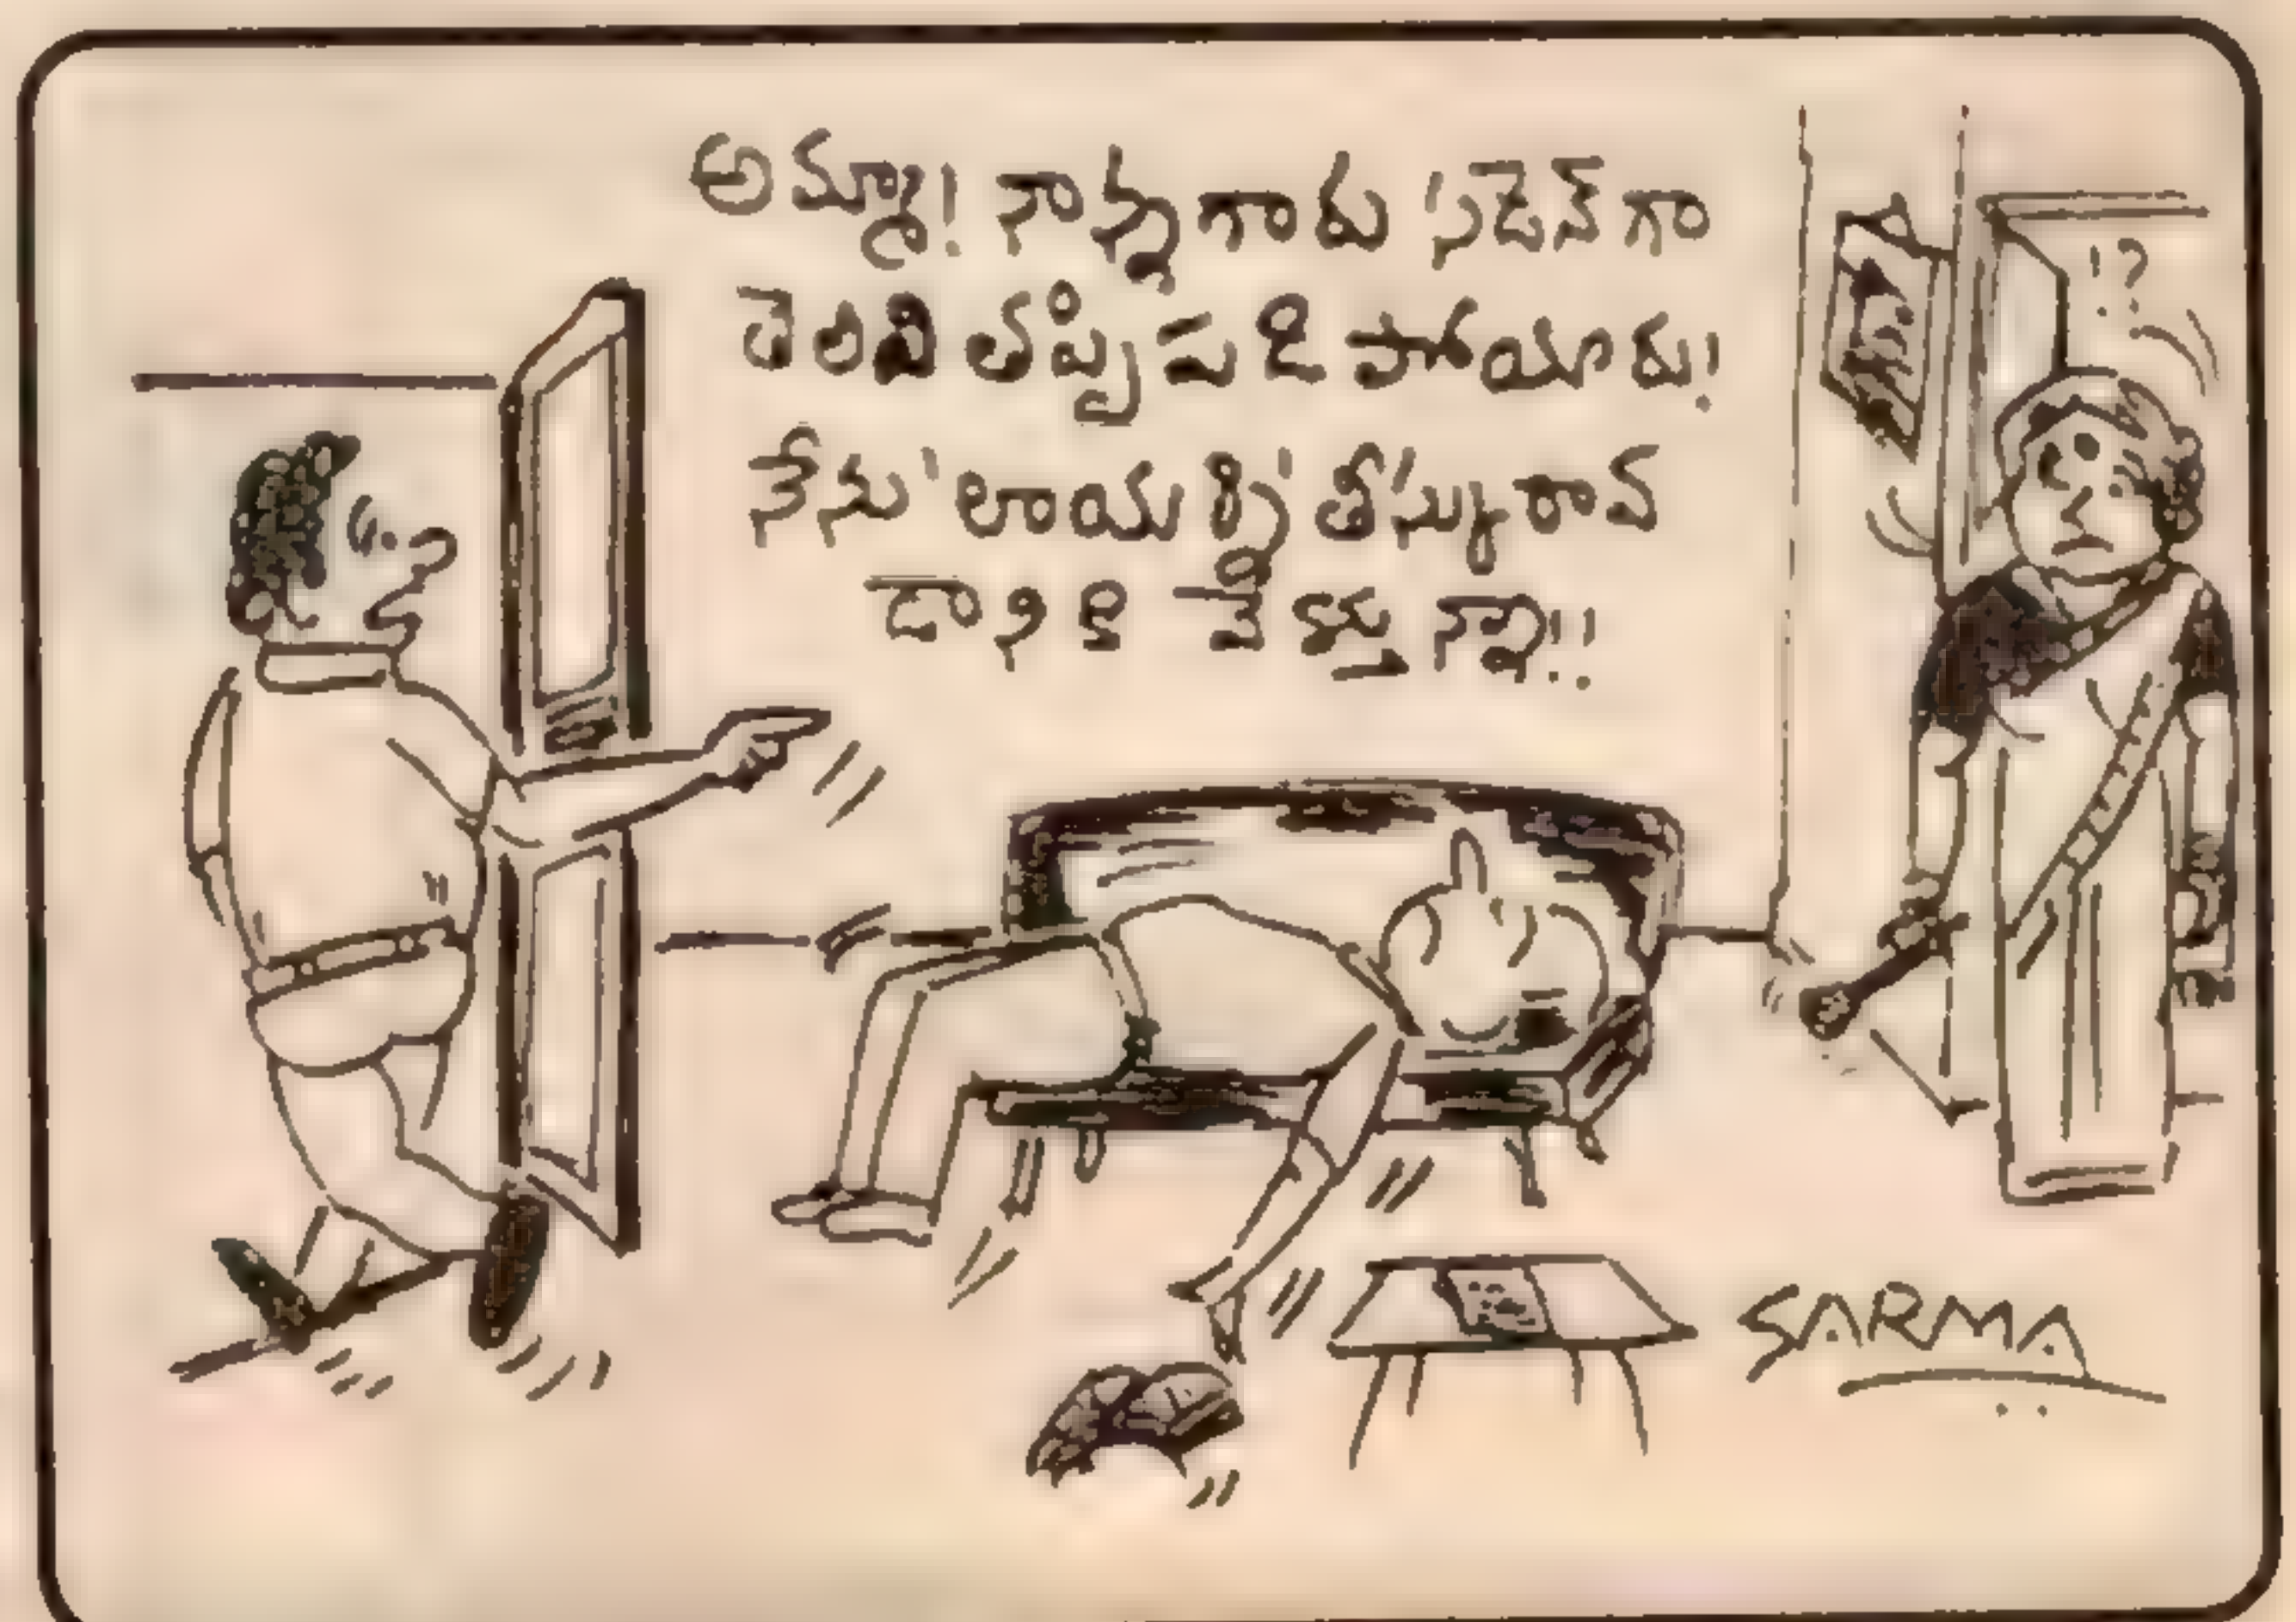 అమ్మా! నాన్నగారు సడెన్ గా
తెలివి తప్పి పడి పోయారు!
నేను 'లాయర్ని' తీస్కురావ్
డానికి వేళ్తున్నా!!
!?
SARMA